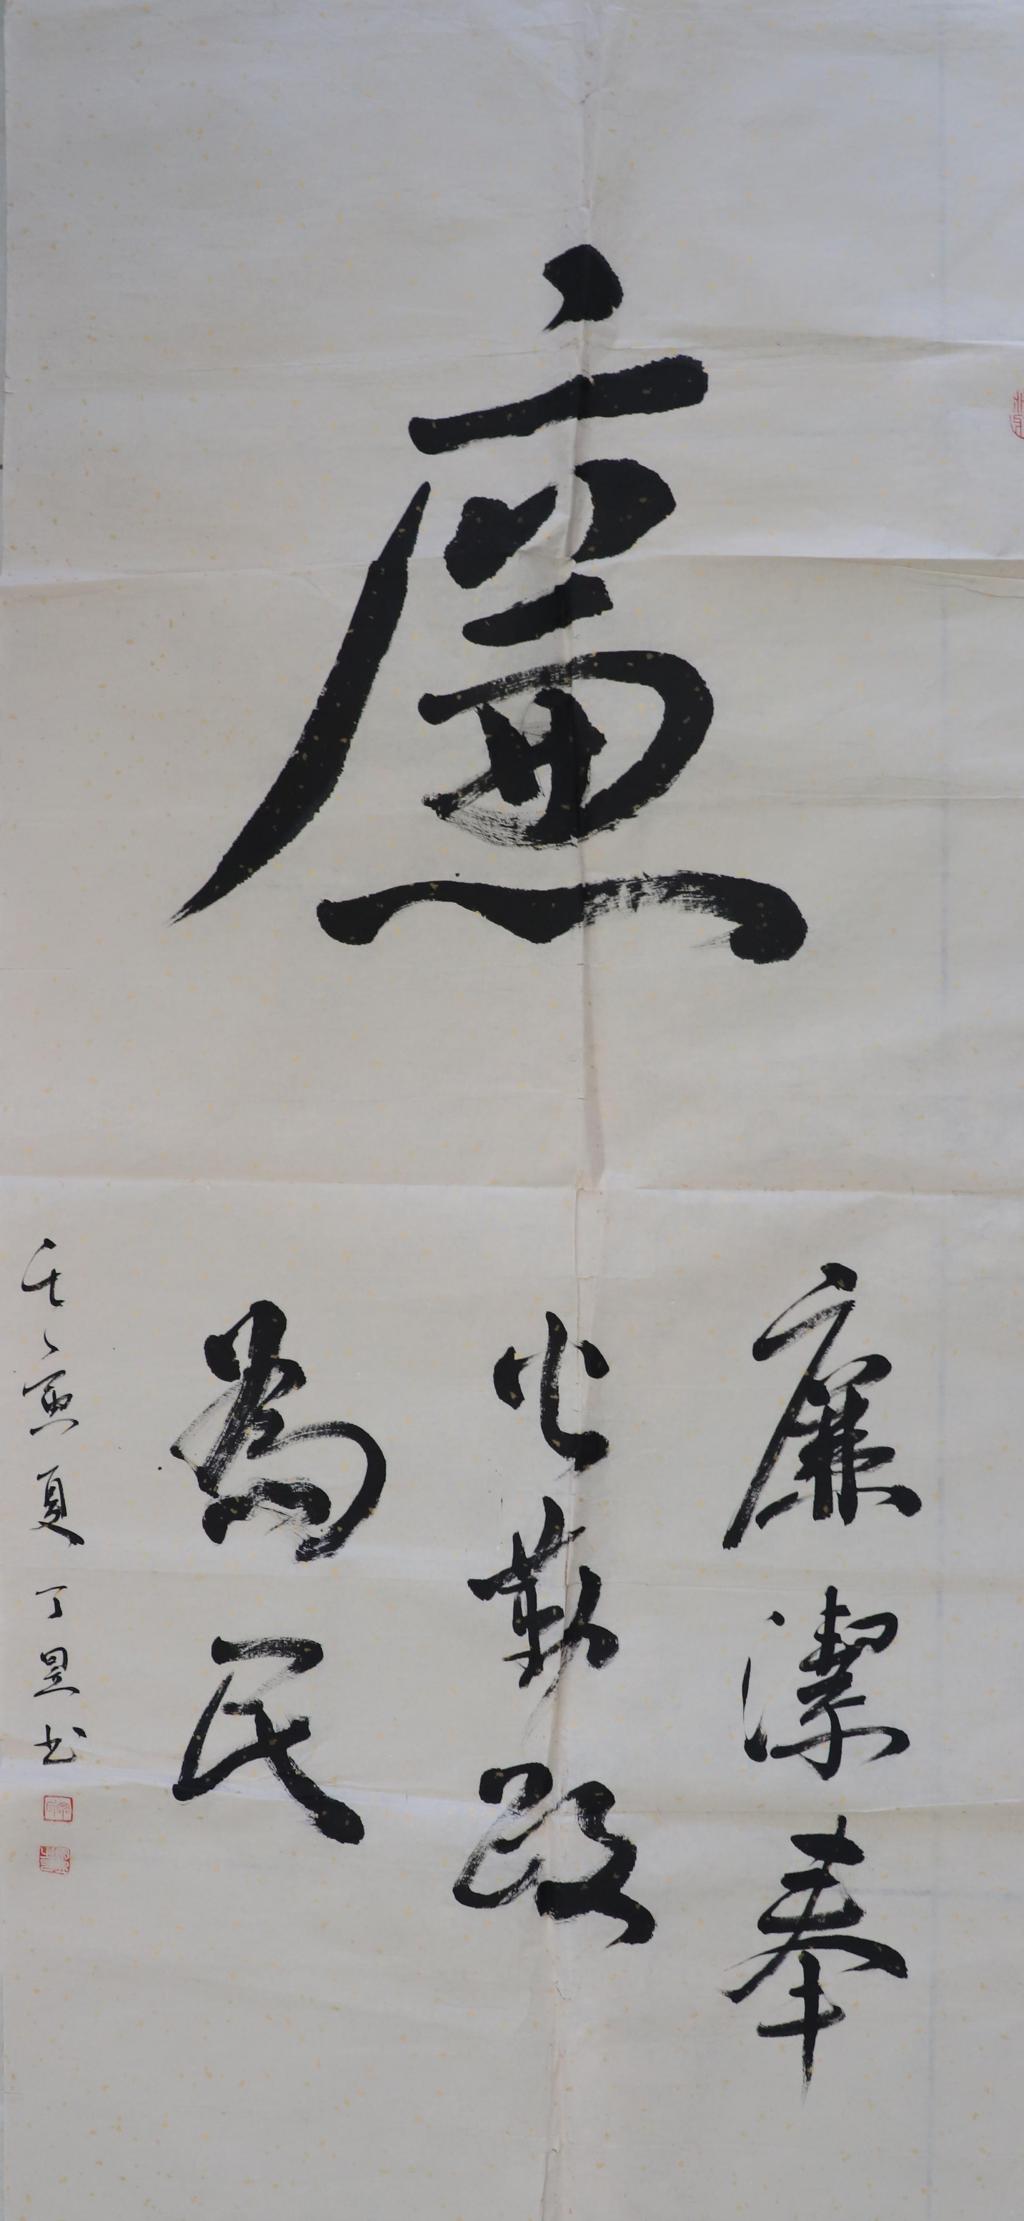 廉
廉潔奉
公勤政
為民
壬寅夏丁昱书